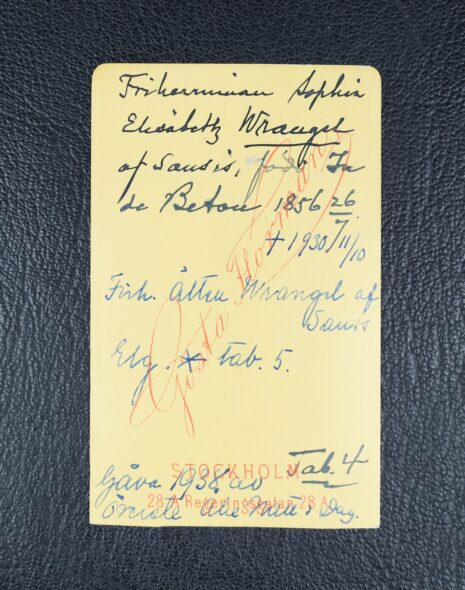 Friherrinnan Sophia
Elisabeth Wrangel
af Sauss, född
de Beton 1856 26/7
+ 1930 11/10
Gösta Florman
Frih. Ätten Wrangel af
Sauss
Elg. tab. 5.
Tab. 4
STOCKHOLM
Gåva 1938 av
28 A Regeringsgatan 28 A
Dag.